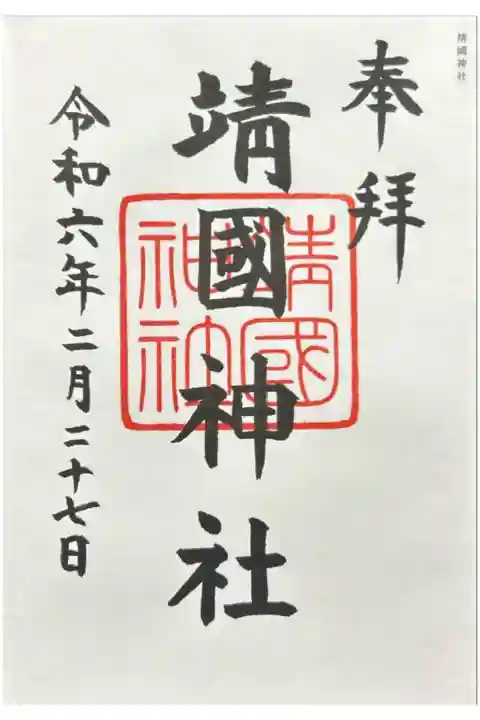 靖國神社
奉拝
靖國神社
靖國神社
令和六年二月二十七日